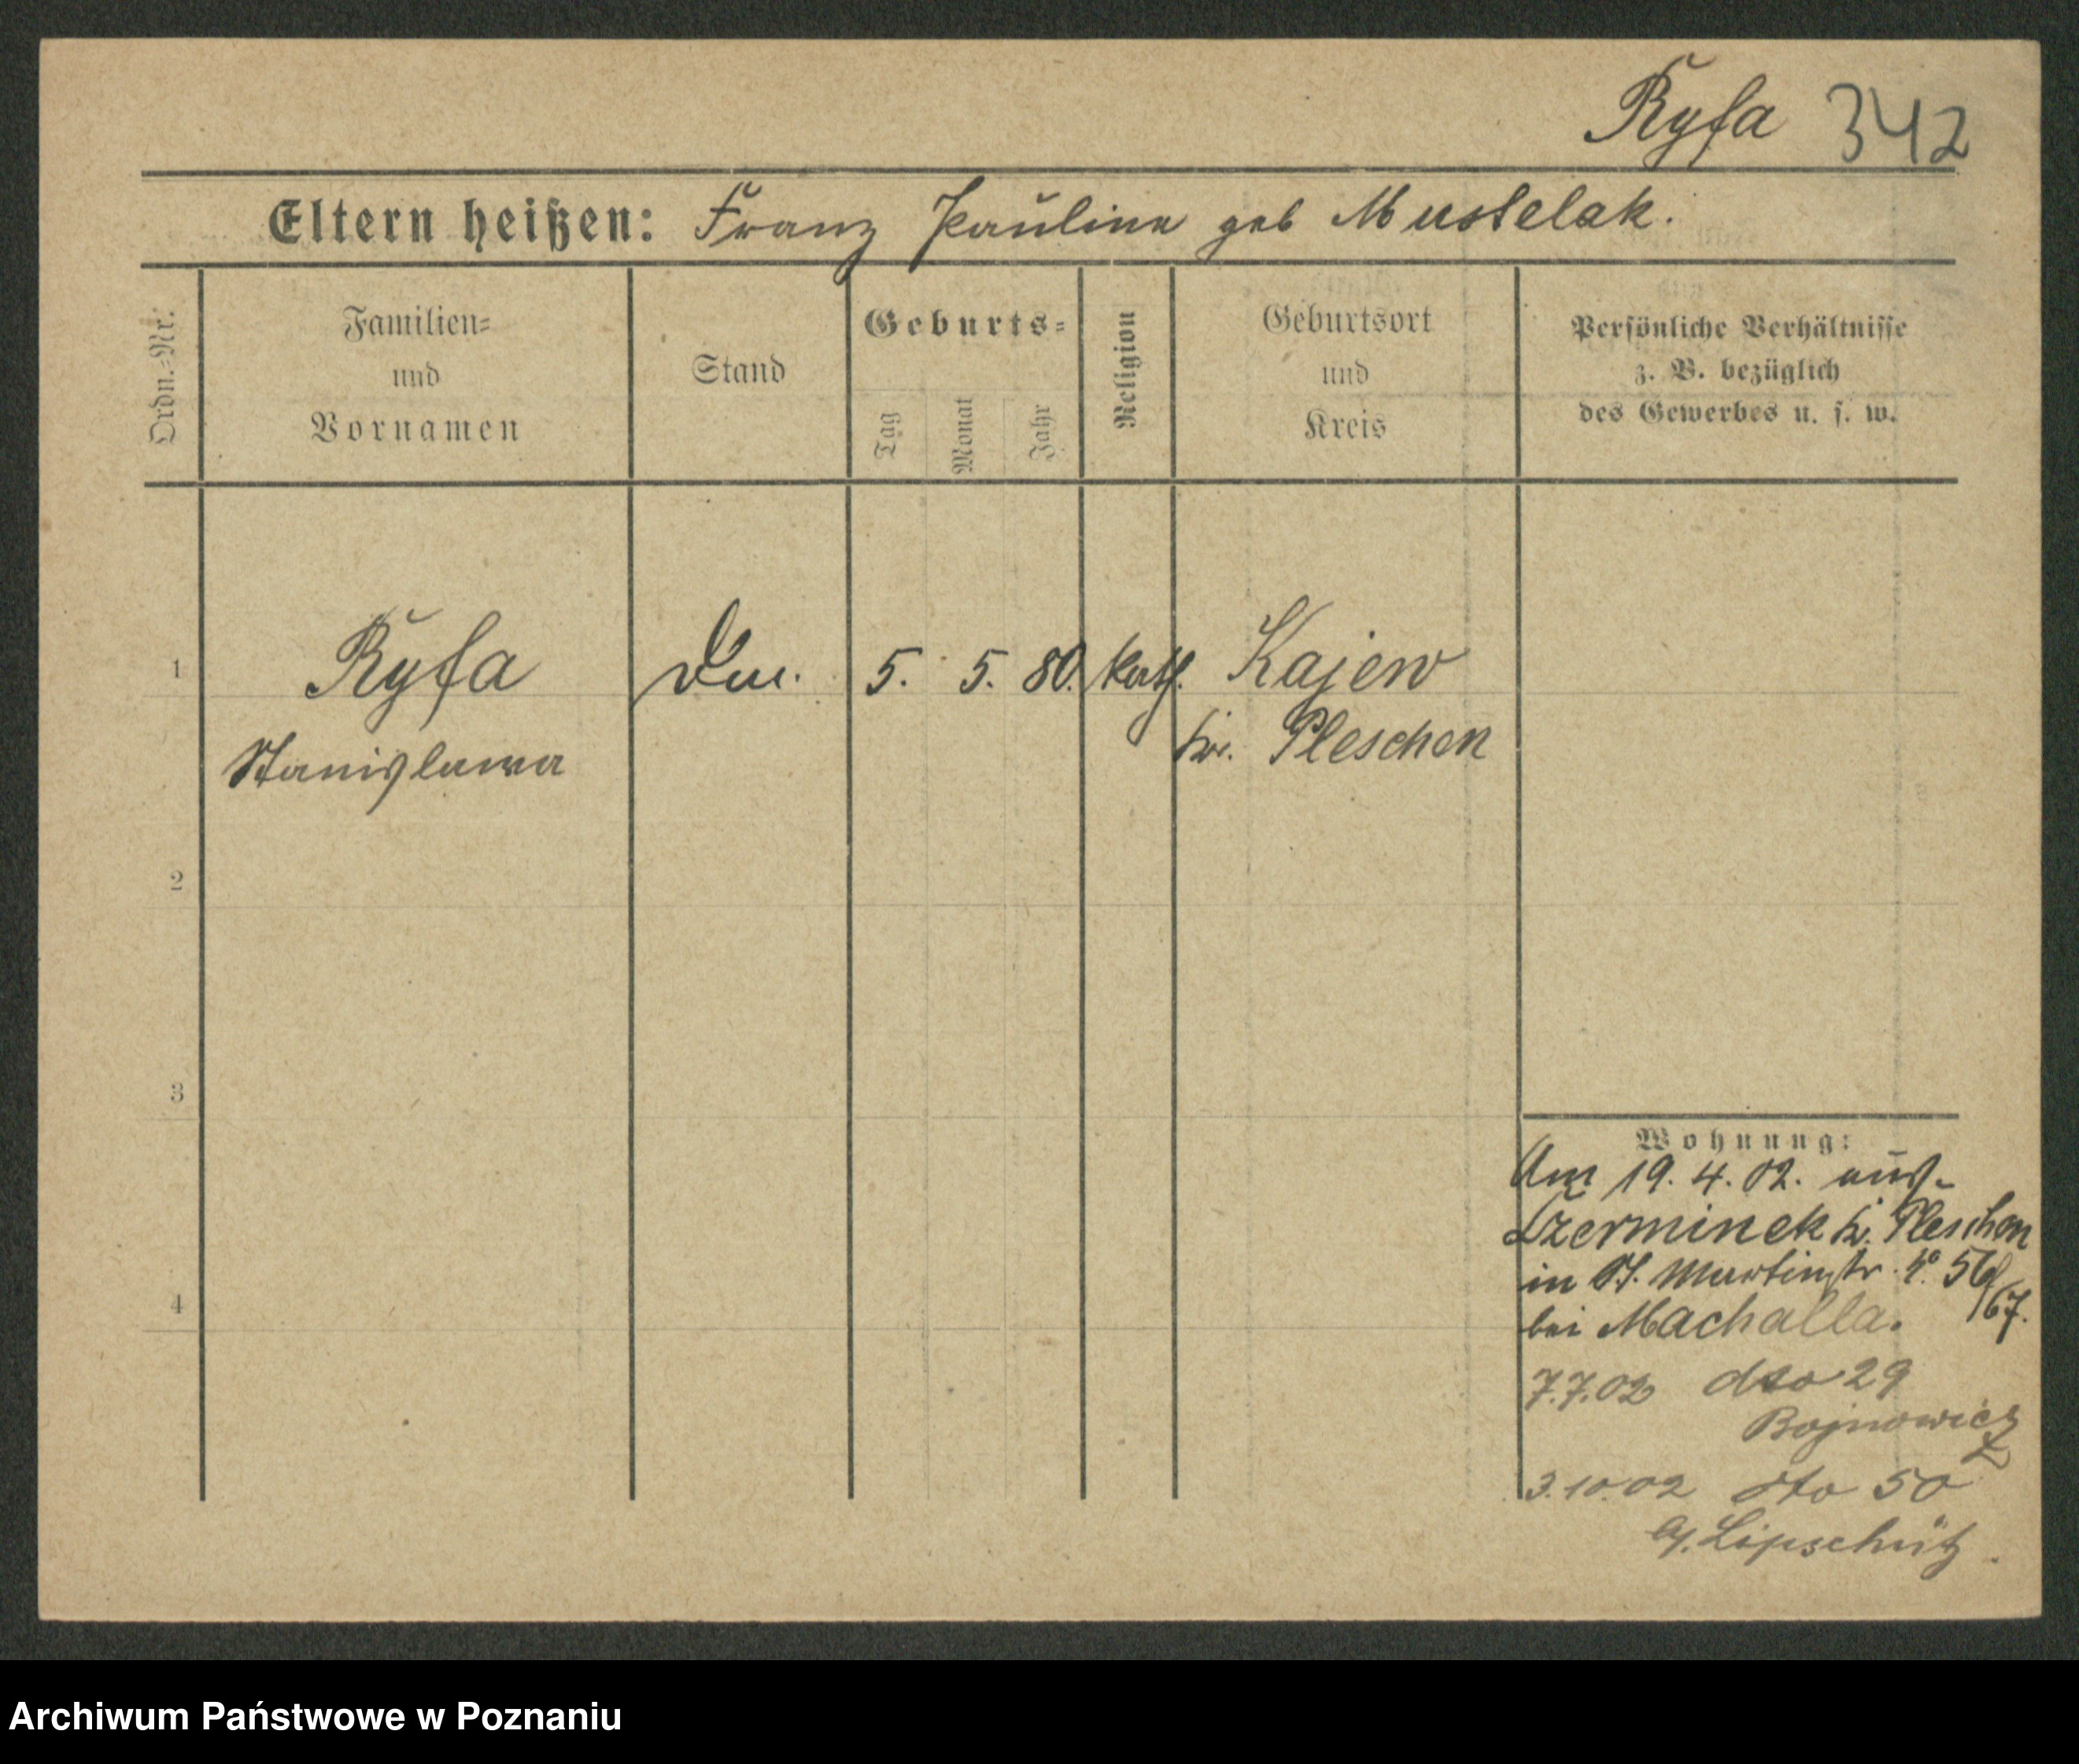 Ryfa 342
Eltern heißen: Franz Pauline geb Mustelak.
Ordn.-Nr.
Familien-
und
Vornamen
Stand
Geburts-
Tag
Monat
Jahr
Religion
Geburtsort
und
Kreis
Persönliche Verhältnisse
z. B. bezüglich
des Gewerbes u. s. w.
1 Ryfa 5. 5. 80. kath. Kajew
Stanislawa Kr. Pleschen
2
3
4
Wohnung:
Am 19. 4. 02. aus
Czerminek Kr. Pleschen
in St. Martinstr. No 56/67.
bei Machalla.
7.7.02 dto 29
Bojnowicz
3.10.02 dto 50
Lipschütz.
Archiwum Państwowe w Poznaniu